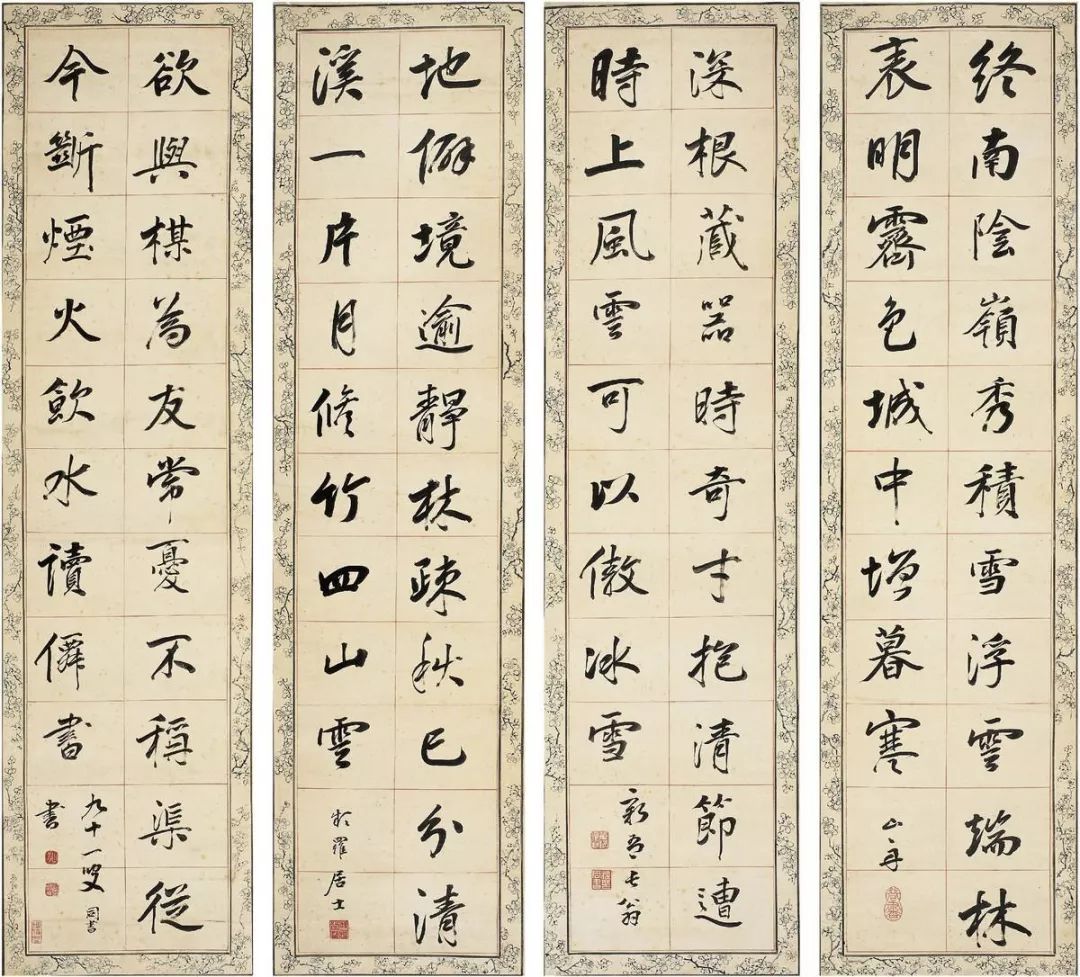 終南陰嶺秀積雪浮雲端林
表明霽色城中增暮寒
山舟
深根藏器時奇才抱清節遭
時上風雲可以傲冰雪
新吾長翁
地僻境逾靜林疎秋已分清
溪一片月脩竹四山雲
羅居士
欲與楳為友常憂不稱渠從
今斷煙火飲水讀僊書
九十一叟同書
書